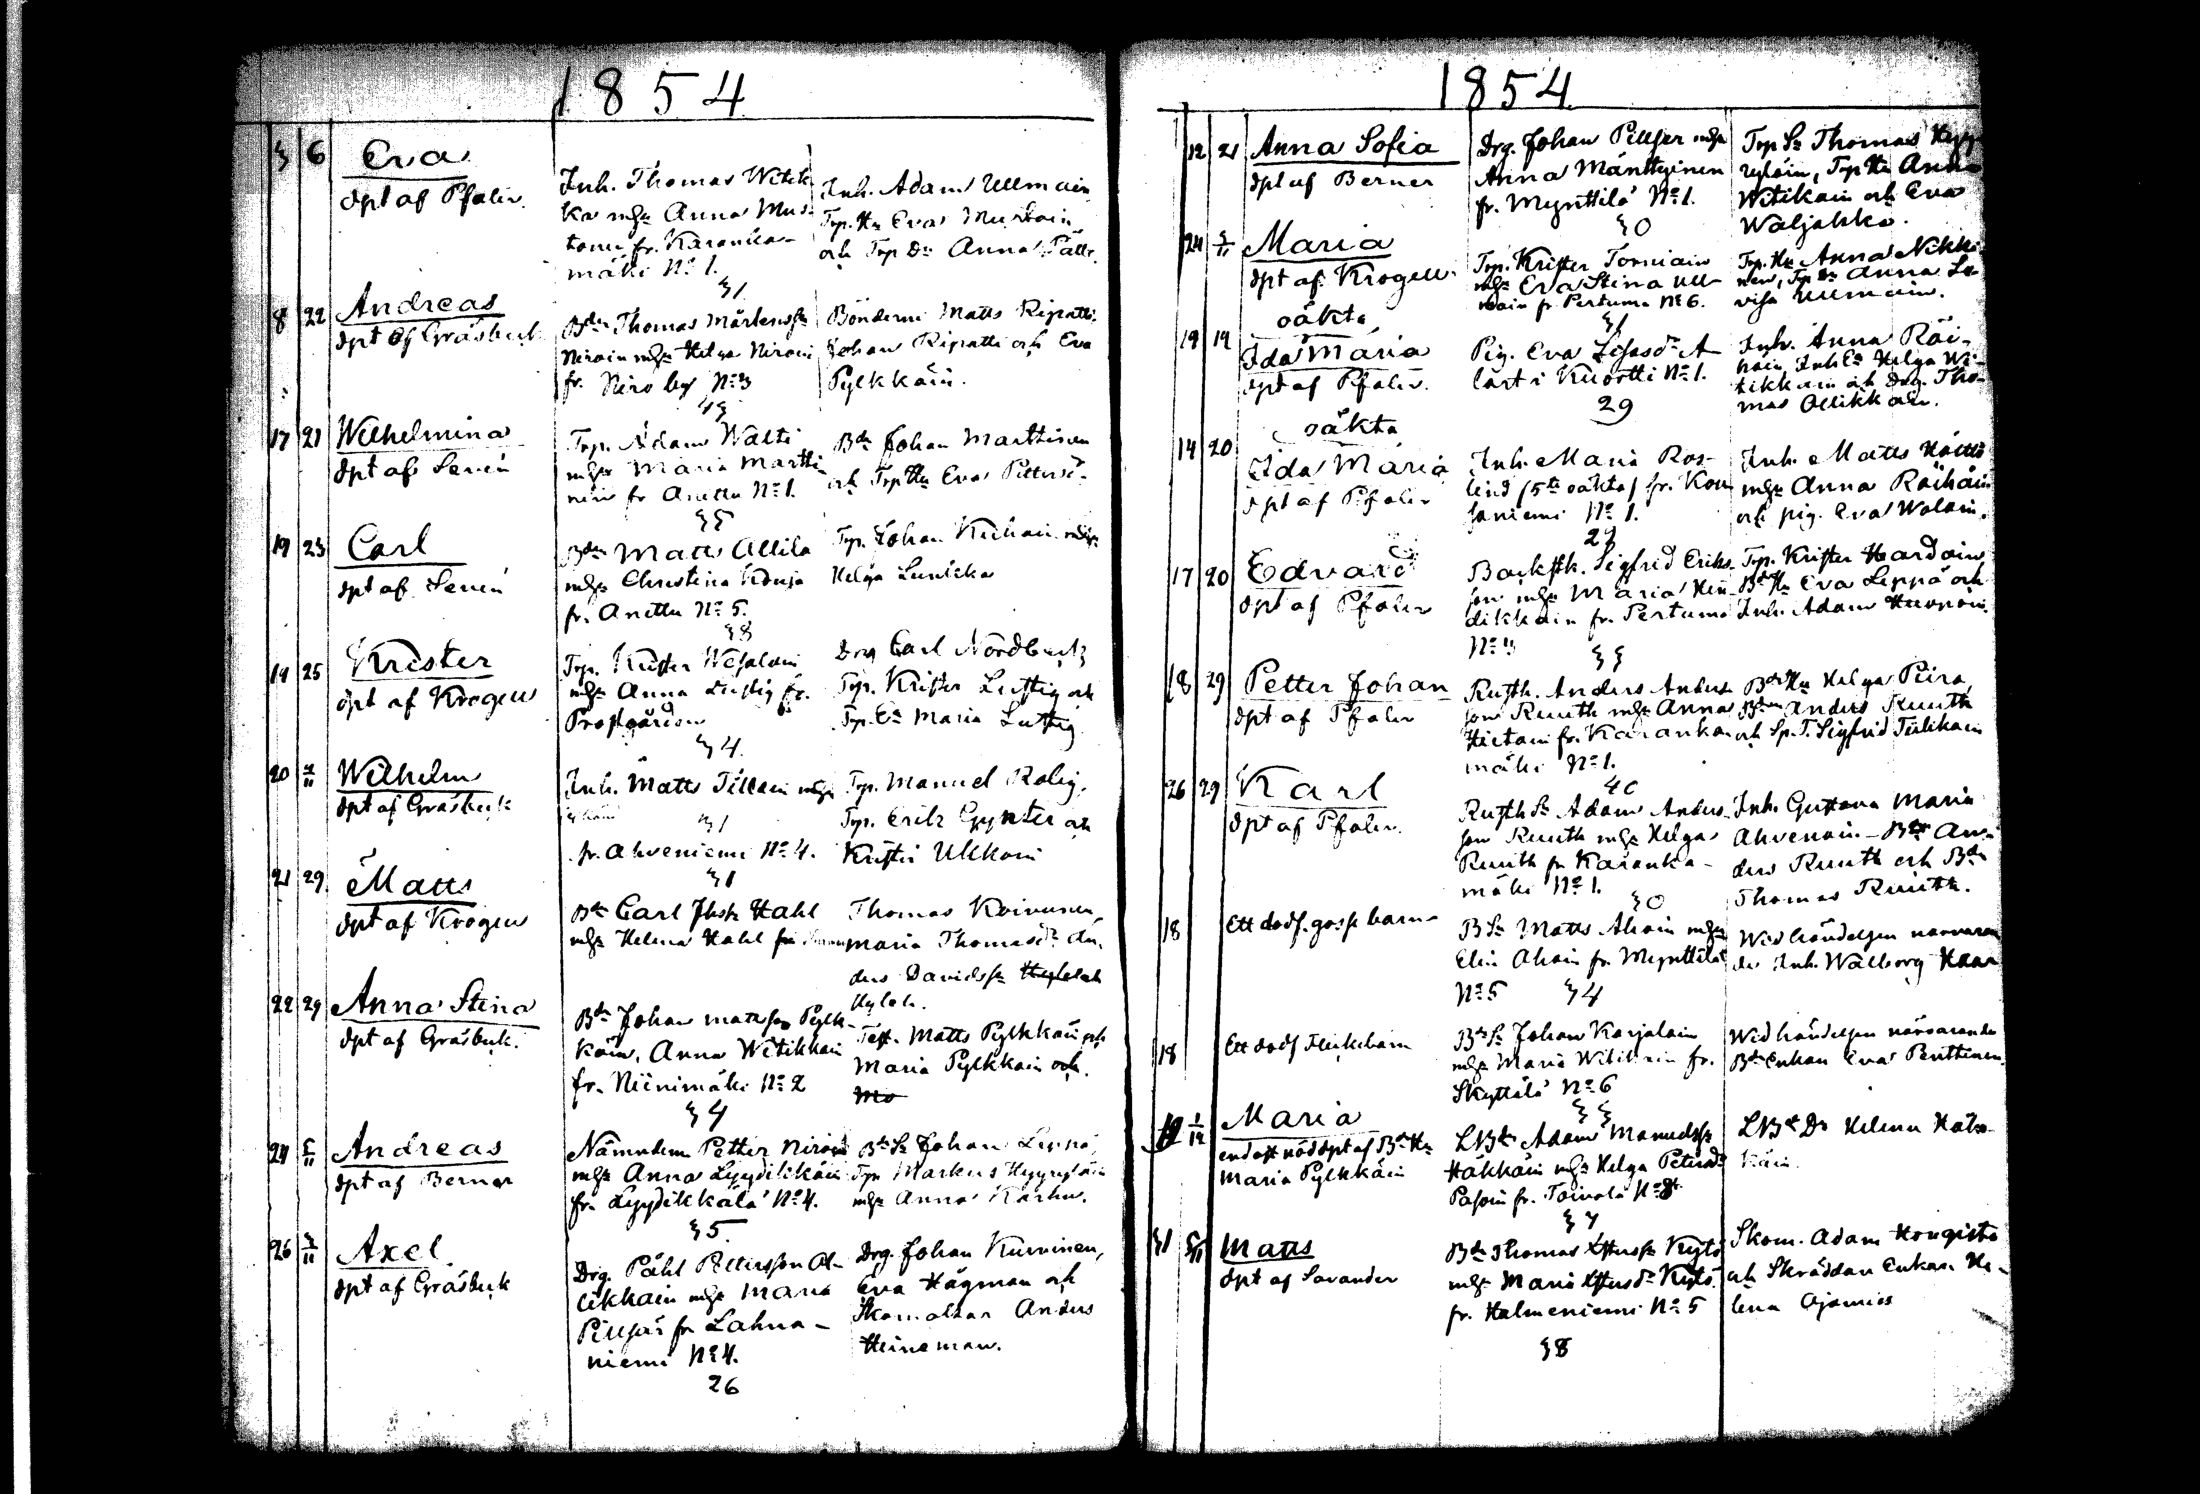 1854
3 6 Eva
dpt af Pfaler.
Inh. Thomas Witik
ka mhu Anna Mus
tonen fr. Karanka-
mäki No 1.
31
Inh. Adam Ullmain
Trp. Hu Eva Mustoin
och Trp Dr Anna Pätts.
8 22 Andreas
dpt af Gråsbeck
Bdn Thomas Mårtenss
Niroin mhu Helga Niroin
fr. Niro by No 3
43
Bönderne Matts Ripatti
Johan Ripatti och Eva
Pylkkäin.
17 21 Wilhelmina
dpt af Serén
Trp. Adam Walti
mhu Maria Martti
nen fr Anettu No 1.
35
Bdn Johan Marttinen
och Trp Hu Eva Pettersd.
19 23 Carl
dpt af Serén
Bdn Matts Ollila
mhu Christina
fr. Anettu No 5.
38
Trp. Johan
Helga
19 25 Krister
dpt af Krogell
Trp. Krister Wesalain
mhu Anna Lustig fr.
Prostgården
34.
Drg Carl Nordberg
Trp. Krister Lustig och
Trp. Ea Maria Lustig
20 Wilhelm
dpt af Gråsbeck
Inh. Matts Tillain mhu
31
fr. Ahveniemi No 4.
31
Trp. Manuel Rolig.
Trp. Erik Gynter och
Kristin Ukkoin
21 29 Matts
dpt af Krogell
Bdn Carl Hahl
mhu Helena Hahl
Thomas Koivunen,
Maria Thomasdr An-
ders Davidss
22 29 Anna Stina
dpt af Gråsbeck.
Bdn Johan Mattsson Pylk-
käin, Anna Witikkain
fr. Niinimäki No 2
34
Matts Pylkkäin och
Maria Pylkkäin och
24 5/11 Andreas
dpt af Berner
Nämndem Petter Niroin
mhu Anna Lyydikkäin
fr. Lyydikkälä No 4.
35
Bdn Sn Johan Leppä
Trp Markus Hyyryläin
mhu Anna Karhu.
26 Axel
dpt af Gråsbeck
Drg. Påhl Pettersson Ol-
likkain mhu Maria
Pillsas fr Lahna-
niemi No 4.
26
Drg. Johan Kurvinen,
Eva Hägman och
Skomakar Anders
Heineman.
1854
12 21 Anna Sofia
dpt af Berner
Drg. Johan Pillser mhu
Anna Mänttyinen
fr. Mynttilä No 1.
30
Trp Sn Thomas Hyy-
ryläin, Trp Hu Anna
Witikain och Eva
Waljakka.
24 5/11 Maria
dpt af Krogell.
Trp. Krister Torniain
mhu Eva Stina Ull-
main fr Pertuma No 6.
31
Trp. Hu Anna Nikki-
nen, Trp Dr Anna Lo-
visa Ullmain.
oäkta
19 19 Ida Maria
dpt af Pfaler.
Pig. Eva Lisasdr A-
lärt i Kuortti No 1.
29
Inh. Anna Räi-
häin, Inh Ea Helga Wi-
tikkain och Drg. Tho-
mas Ollikkain.
oäkta
14 20 Ida Maria
dpt af Pfaler
Inh. Maria Ros-
lind (5te oäkta) fr. Kou
saniemi No 1.
Inh. Matts Hölttä
mhu Anna Räihäin
och pig. Eva Walain.
17 20 Edvard
dpt af Pfaler
Backstk. Sigfrid Eriks-
son mhu Maria Hen-
dikkain fr. Pertuma
33
Trp. Krister Hardoin
Bdn Hu Eva Leppä och
Inh. Adam
18 29 Petter Johan
dpt af Pfaler
Rusth. Anders Anders-
son Ruuth mhu Anna
Hietain fr. Karanka-
mäki No 1.
40
Bdn Hu Helga Piira,
Bdn Anders Ruuth
och Sp. T. Sigfrid Tiilikain
26 29 Karl
dpt af Pfaler.
Rusth Sn Adam Anders-
son Ruuth mhu Helga
Ruuth fr Karanka-
mäki No 1.
30
Inh. Gustava Maria
Ahvenain - Bdn An-
ders Ruuth och Bdn
Thomas Ruuth.
18 Ett dödf. gosse barn
B Sn Matts Ahoin mhu
Elin Ahoin fr. Mynttilä
No 5 34
Wid händelsen närvaran
de Inh. Walborg Haar
18 Ett dödf flickebarn
Bdn Sn Johan Karjalain
mhu Maria Witikain fr.
Skyttälä No 6
33
Wid händelsen närvarande
Bdn Enkan Eva Penttinen
1/12 Maria
endast nöddpt af Bdn Hu
Maria Pylkkäin
LBdn Adam Manuelss
Häkkäin mhu Helga Petersdr
Pasoin fr. Toivola No 8
37
LBdn Dr Helena Häk-
käin.
31 Matts
dpt af Savander
Bdn Thomas Kytö
mhu Maria Kytö
fr. Halmeniemi No 5
38
Skom. Adam Hongisto
och Skräddar Enkan He-
lena Ojamies